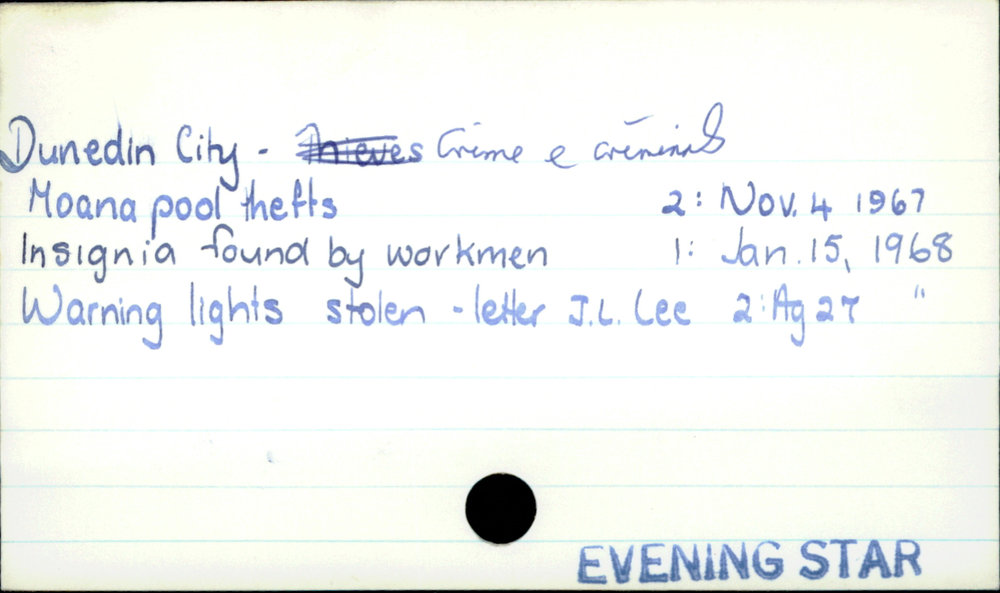 Dunedin City - Thieves Crime e criminals
Moana pool thefts 2: Nov. 4 1967
Insignia found by workmen 1: Jan. 15, 1968
Warning lights stolen - letter J.L. Lee 2: Ag 27 "
EVENING STAR